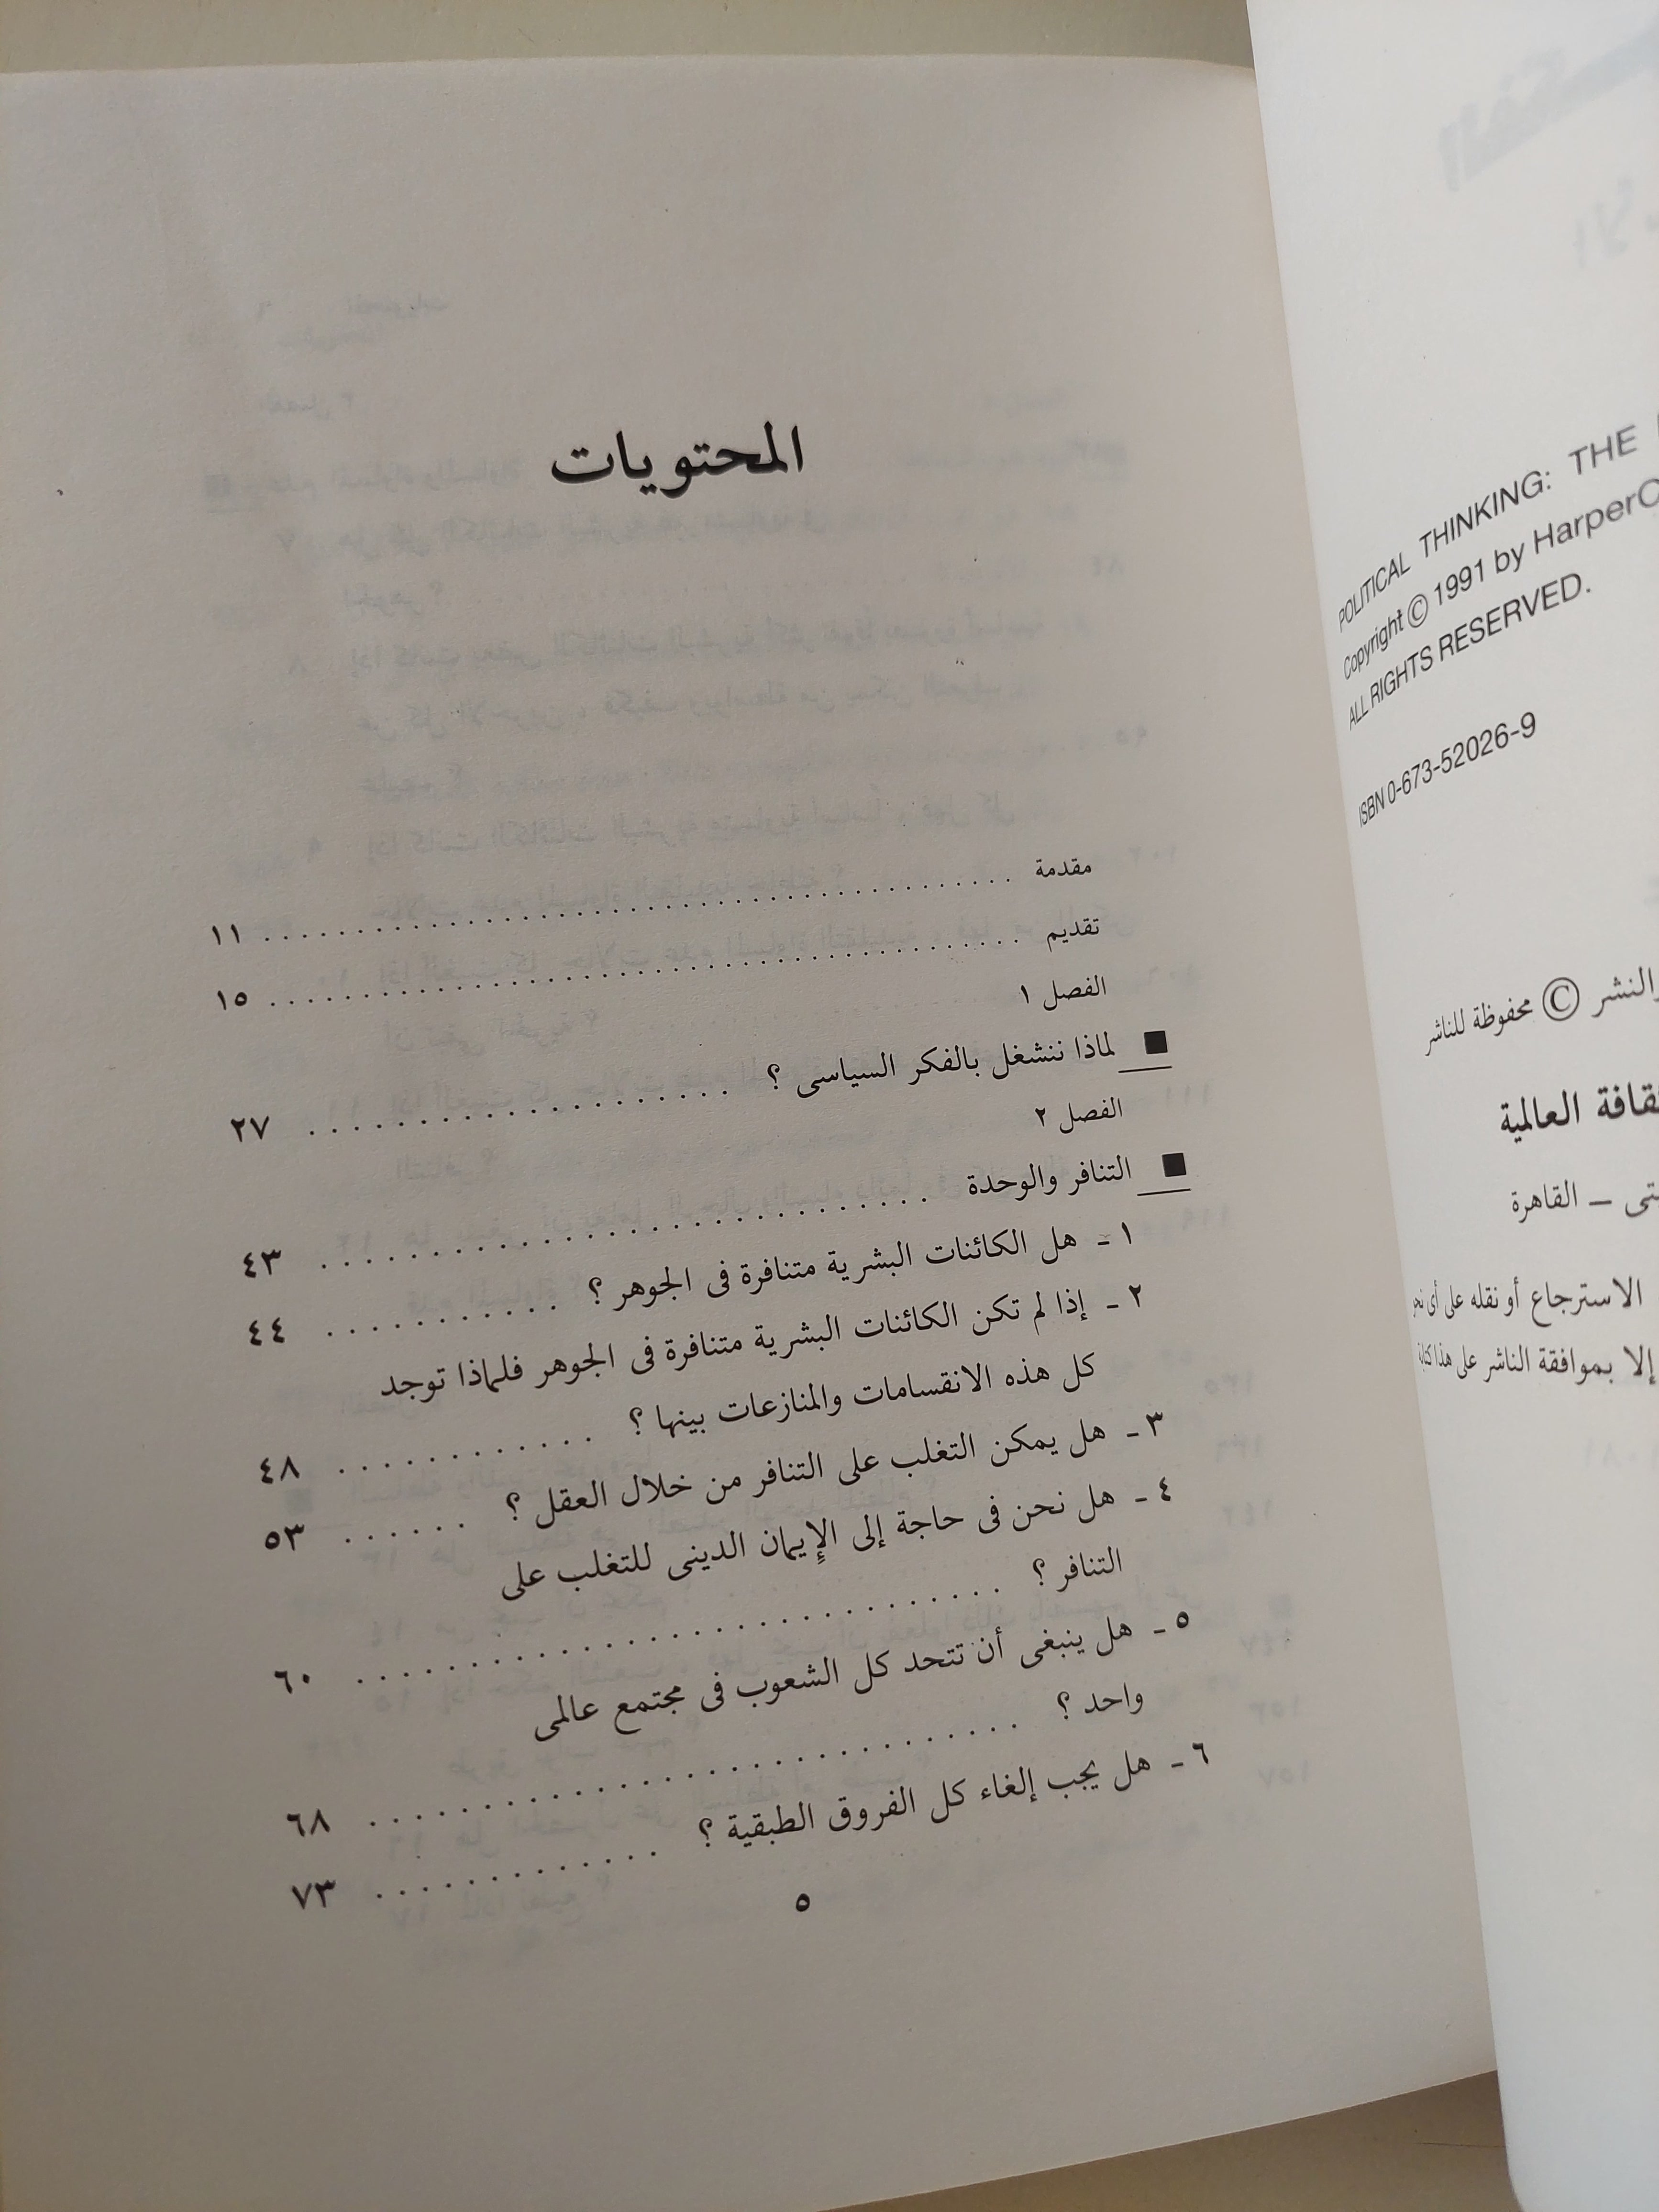 POLITICAL THINKING: THE
Copyright © 1991 by HarperC
ALL RIGHTS RESERVED.
ISBN 0-673-52026-9
والنشر © محفوظة للناشر
العالمية
القاهرة
الاسترجاع أو نقله على أى نحو
إلا بموافقة الناشر على هذا كتابة
المحتويات
مقدمة . . . . . . . . . . ١١
تقديم . . . . . . . . . . ١٥
الفصل ١
■ لماذا ننشغل بالفكر السياسى ؟ . . . . . . . . . . ٢٧
الفصل ٢
■ التنافر والوحدة . . . . . . . . . . ٤٣
١ - هل الكائنات البشرية متنافرة فى الجوهر ؟ . . . . . . . . . . ٤٤
٢ - إذا لم تكن الكائنات البشرية متنافرة فى الجوهر فلماذا توجد
كل هذه الانقسامات والمنازعات بينها ؟ . . . . . . . . . . ٤٨
٣ - هل يمكن التغلب على التنافر من خلال العقل ؟ . . . . . . ٥٣
٤ - هل نحن فى حاجة إلى الإيمان الدينى للتغلب على
التنافر ؟ . . . . . . . . . . ٦٠
٥ - هل ينبغى أن تتحد كل الشعوب فى مجتمع عالمى
واحد ؟ . . . . . . . . . . ٦٨
٦ - هل يجب إلغاء كل الفروق الطبقية ؟ . . . . . . . . . . ٧٣
٥